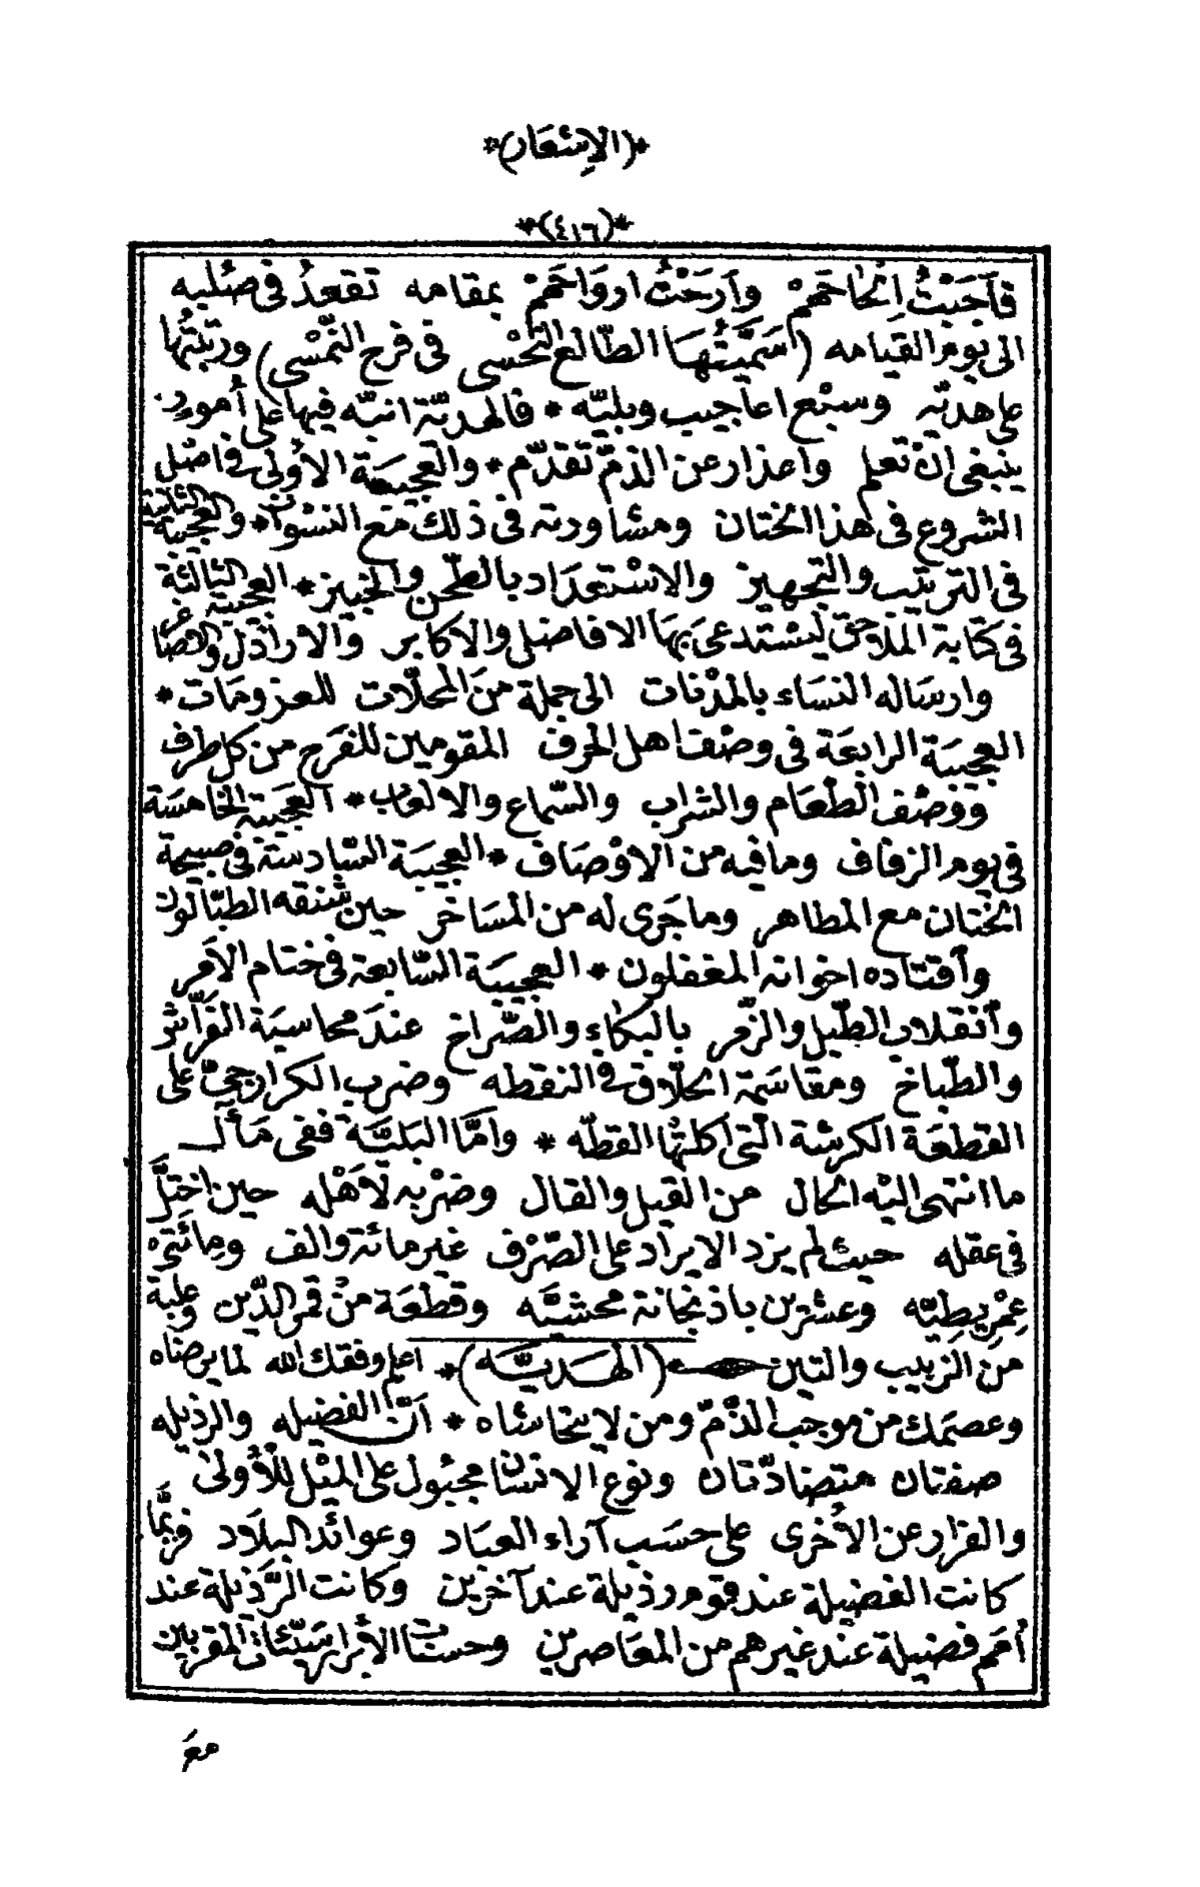 *(الاشعار)*
*(٤١٦)*
فأجَبْتُ اِلحاحَهمْ وأرَحْتُ اروَاحَهمْ بمقامه تقعدُ في صُلبه
الى يوم القيامه (اسَمَّيْتُهَا الطّالع النّحْسى فى فرح النّمْسى) ورتبتُها
على هديّه وسبْع اعاجيب وبليّه * فالهديّة انبّه فيها على أمورٍ
ينبغى انْ تعلم واعذار عن الذمّ تقدّم * والعجيبَة الأولى فى اصْل
الشروع فى هذا الختان ومشاورته فى ذلك مَع النسْوان * والعجيبَة الثانية
فى الترتيب والتجهيز والاسْتعدَاد بالطّحن والخبز * العجيبَة الثالثة
فى كتابة التي ليسْتدعىَ بهَا الافاضل والاكابر والاراذل
وارسَاله النسَاء بالمدْنات الى جملة منَ المحلّات للعزومَات *
العجيبَة الرابعَة فى وصْف اهل الحرف المقومين للفرَح من كل طرف
ووصْف الطعَام والشراب والسّماع والالعاب * العجيبَة الخامسَة
فى يوم الزفاف ومافيه من الاوْصَاف * العجيبَة السّادسَة فى صبيحة
الختان مع المطاهر وماجَرى له من المسَاخر حين شنقه الطبّالون
وأقتاده اخوانه المغفلون * العجيبَة السّابعة فى ختام الامَر
وأنقلاب الطّبل والزّمر بالبكاء والصّراخ عندَ محاسبَة الفرّاش
والطّباخ ومقاسَمة الحلّاق فى النقطه وضرب الكرارجىّ على
القطعَة الكرشة الّتى اكلتْهُا القطّه * وامَّا البَليَّة ففى مَآل
ما انتهى اليْه الحال من القيل والقال وضرْبه لأهْله حين اختلَّ
فى عقله حيث لم يزد الايرَاد على الصّرْف غير مائة والف ومِائتىْ
عِمْريطِيّه وعشرين باذنجانة محشيَّه وقطْعَة منْ قمر الدّين وعلبة
منَ الزبيب والتين * (الهَديَّه) * اعلم وفقك الله لما يرضاه
وعصمَك من موجب الذّمّ ومن لا يتحاشاه * أنّ الفضيله والرذيله
صفتان متضادّتان ونوع الانسَان مجبُول على الميْل للأولى
والفرار عن الأخرى على حسَب آراء العبَاد وعوائد البلَاد فربَّما
كانت الفضيلة عند قوم رذيلة عند آخرين وكانت الرَّذيلة عند
أمَم فضيلة عند غيرهم من المعَاصرين وحسنات الأبرار سَيّئات المقرّبين
معَر